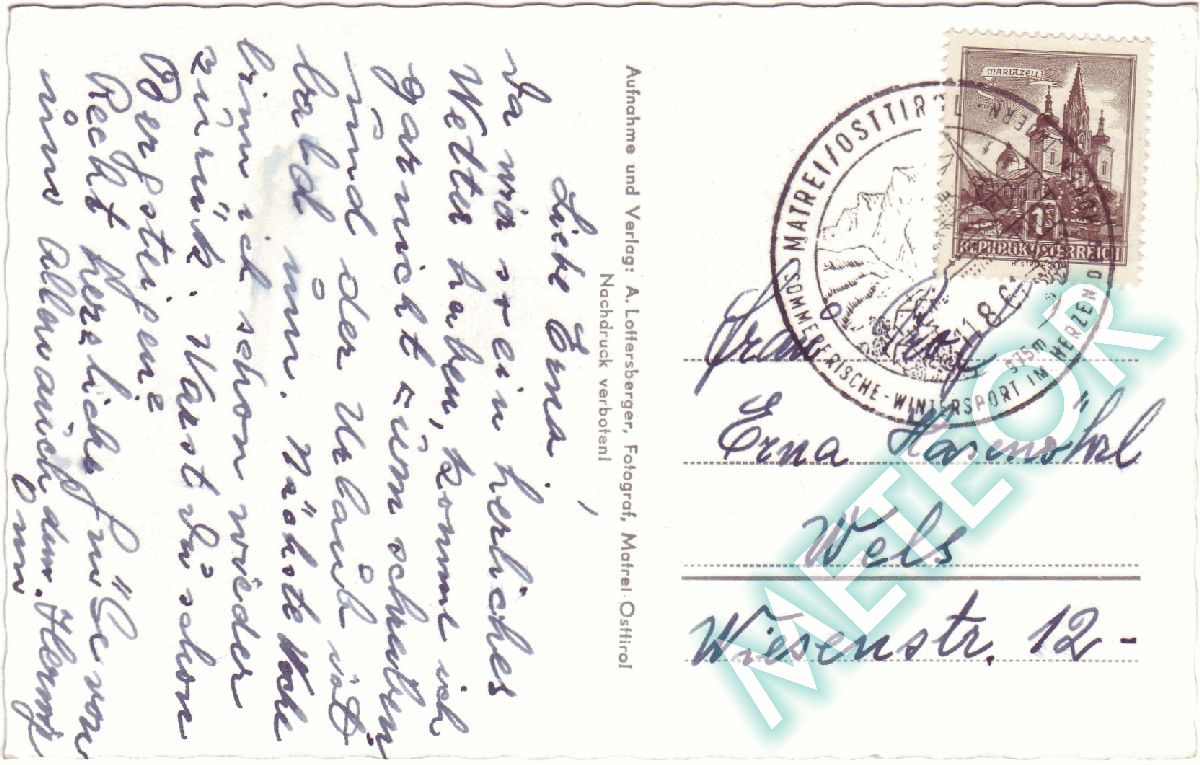 Liebe Erna!
Da wir so ein herliches
Wetter haben, komme ich
garnicht zum schreiben
und der Urlaub ist
bald um. Nächste Woche
bin ich schon wieder
zürück. Warst du schon
Bergsteigen?
Recht herzliche Grüße von
uns allen auch dem
Aufnahme und Verlag: A. Lottersberger, Fotograf, Matrei-Osttirol
Nachdruck verboten!
MARIAZELL
REPUBLIK ÖSTERREICH
MATREI/OSTTIROL
11.8.61
SOMMERFRISCHE-WINTERSPORT IM HERZEN D
Frau
Erna Hasenöhrl
Wels
Wiesenstr. 12-
METEOR